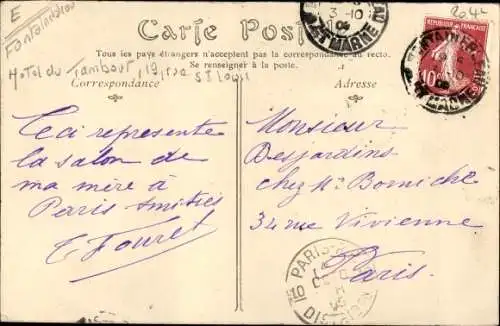 E
Fontainebleau
Carte Postale
3-10
Tous les pays étrangers n'acceptent pas la correspondance au recto.
Se renseigner à la poste.
Hotel du Tambour, 19, rue
St Louis
Correspondance
Adresse
REPUBLIQUE FRANÇAISE
10
FONTAINEBLEAU
Ceci represente
la salon de
ma mère à
Paris amitiés
E Fouret
Monsieur
Desjardins
chez Mr Borniche
34 rue Vivienne
Paris
PARIS